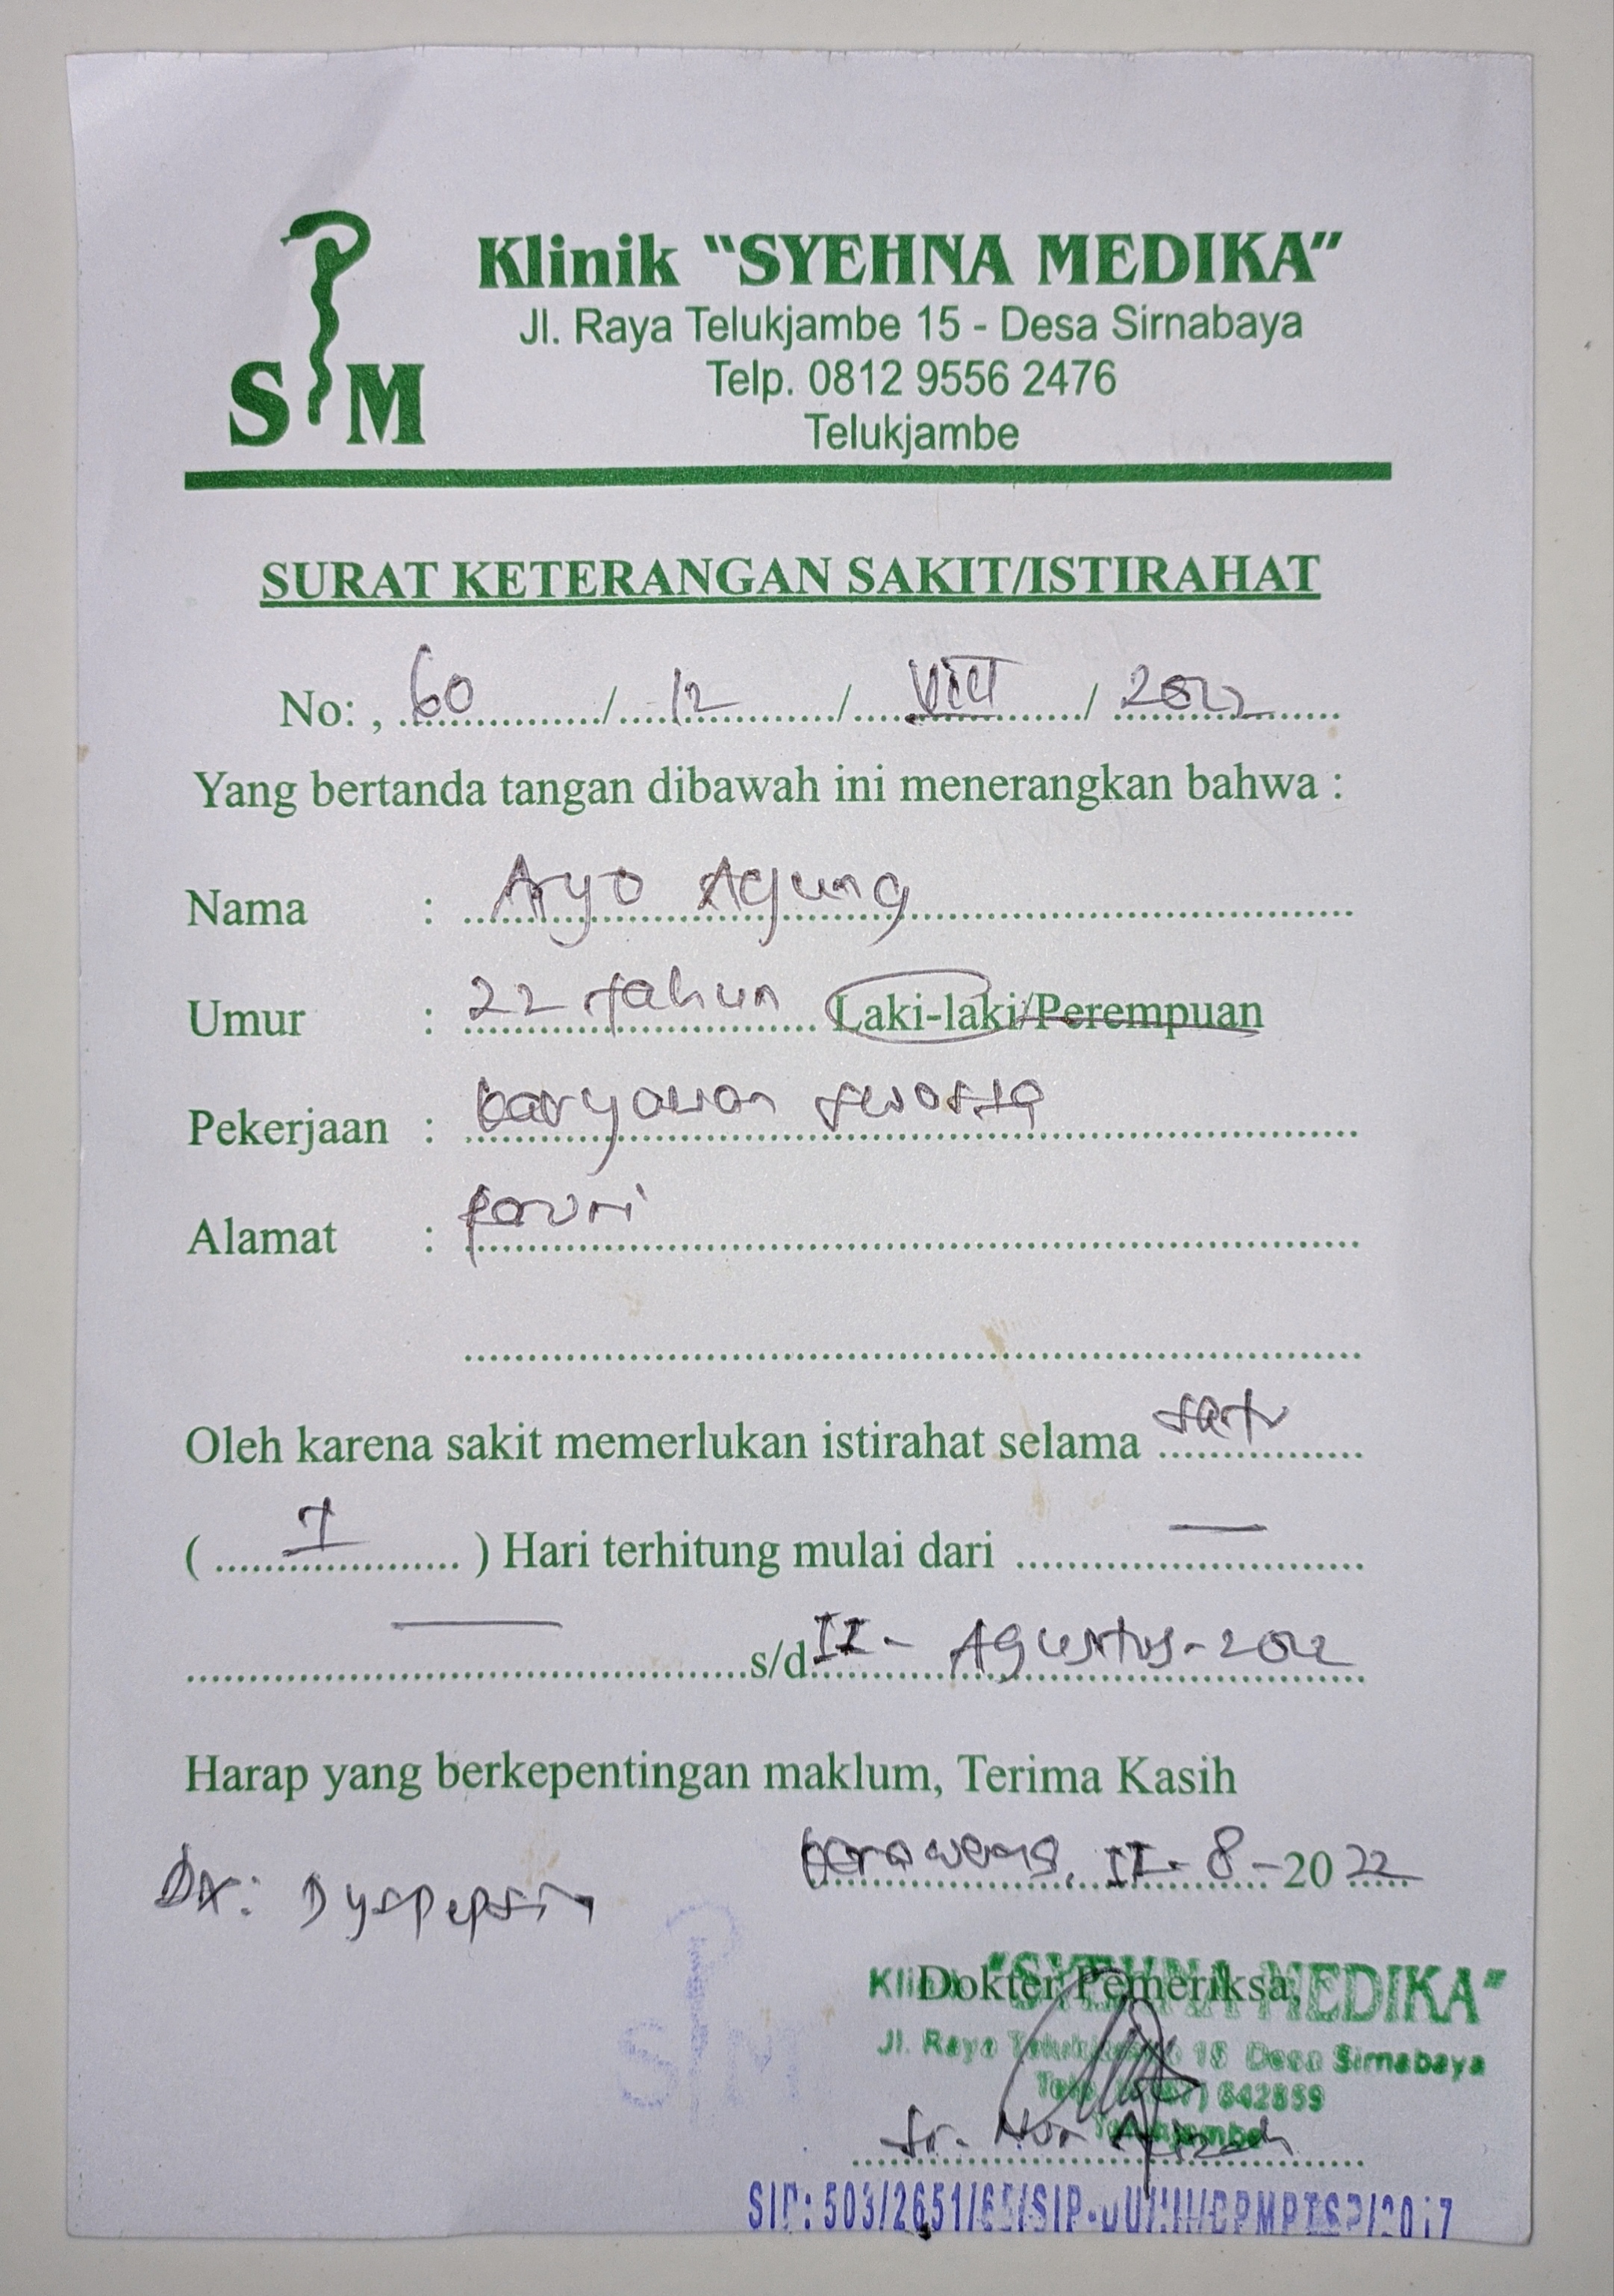 Klinik "SYEHNA MEDIKA"
Jl. Raya Telukjambe 15 - Desa Sirnabaya
Telp. 0812 9556 2476
Telukjambe
S M
SURAT KETERANGAN SAKIT/ISTIRAHAT
No: , 60 / 12 / VIII / 2022
Yang bertanda tangan dibawah ini menerangkan bahwa :
Nama : Aryo Agung
Umur : 22 tahun Laki-laki/Perempuan
Pekerjaan : karyawan swasta
Alamat :
Oleh karena sakit memerlukan istirahat selama satu
( 1 ) Hari terhitung mulai dari —
— s/d II - Agustus - 2022
Harap yang berkepentingan maklum, Terima Kasih
Karawang, II - 8 - 20 22
Dx: Dyspepsia
Dokter Pemeriksa,
Klinik "SYEHNA MEDIKA"
Jl. Raya Telukjambe 15 Desa Sirnabaya
Telukjambe
dr. Nur
SIP: 503/2651/